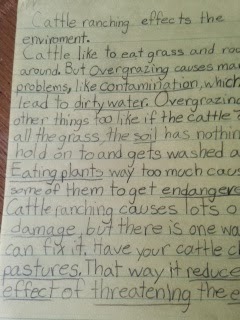 Cattle ranching effects the
enviroment.
Cattle like to eat grass and
around. But Overgrazing causes
problems, like contamination, which
lead to dirty water. Overgrazing
other things too like if the cattle
all the grass, the soil has nothing
hold on to and gets washed a
Eating plants way too much
some of them to get
Cattle ranching causes lots o
damage, but there is one wa
can fix it. Have your cattle c
pastures. That way it reduce
effect of threatening the e